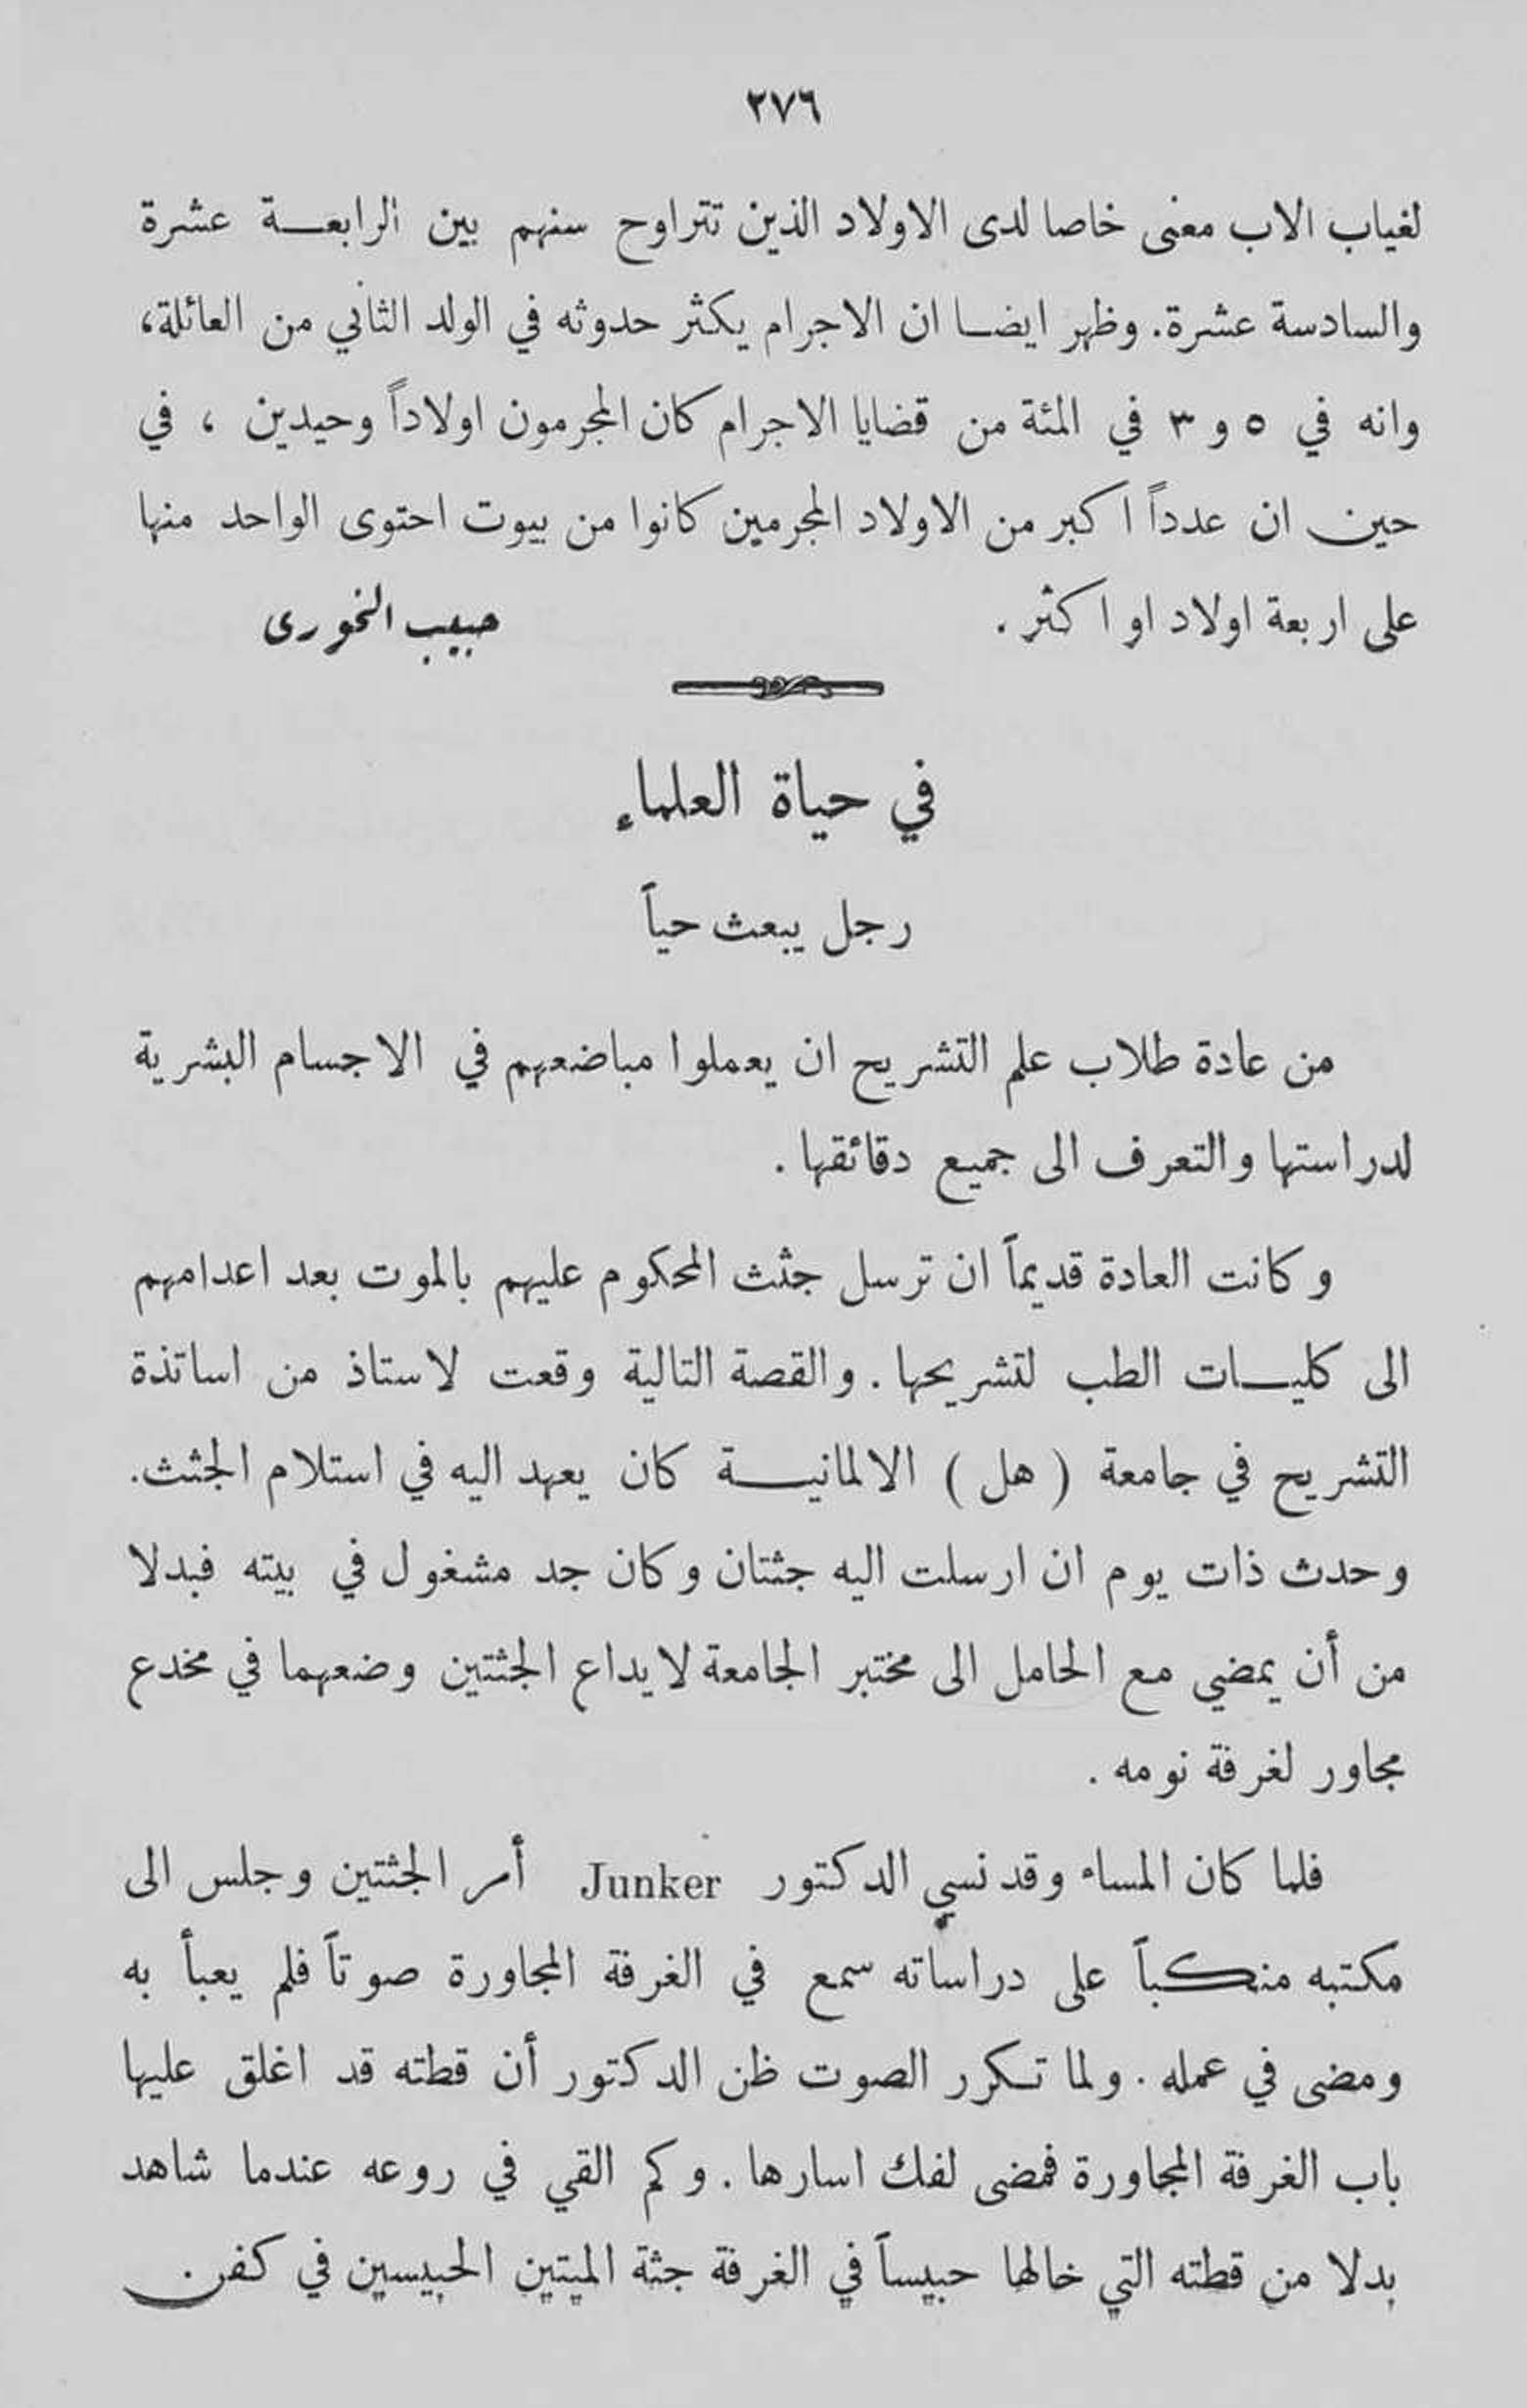 ٢٧٦
لغياب الاب معنى خاصا لدى الاولاد الذين تتراوح سنهم بين الرابعة عشرة
والسادسة عشرة. وظهر ايضا ان الاجرام يكثر حدوثه في الولد الثاني من العائلة،
وانه في ٥ و ٣ في المئة من قضايا الاجرام كان المجرمون اولاداً وحيدين ، في
حين ان عدداً اكبر من الاولاد المجرمين كانوا من بيوت احتوى الواحد منها
على اربعة اولاد او اكثر .
حبيب الخورى
في حياة العلماء
رجل يبعث حياً
من عادة طلاب علم التشريح ان يعملوا مباضعهم في الاجسام البشرية
لدراستها والتعرف الى جميع دقائقها .
وكانت العادة قديماً ان ترسل جثث المحكوم عليهم بالموت بعد اعدامهم
الى كليات الطب لتشريحها . والقصة التالية وقعت لاستاذ من اساتذة
التشريح في جامعة ( هل ) الالمانية كان يعهد اليه في استلام الجثث.
وحدث ذات يوم ان ارسلت اليه جثتان وكان جد مشغول في بيته فبدلا
من أن يمضي مع الحامل الى مختبر الجامعة لايداع الجثتين وضعهما في مخدع
مجاور لغرفة نومه .
فلما كان المساء وقد نسي الدكتور Junker أمر الجثتين وجلس الى
مكتبه منكباً على دراساته سمع في الغرفة المجاورة صوتاً فلم يعبأ به
ومضى في عمله . ولما تكرر الصوت ظن الدكتور أن قطته قد اغلق عليها
باب الغرفة المجاورة فمضى لفك اسارها . وكم القي في روعه عندما شاهد
بدلا من قطته التي خالها حبيساً في الغرفة جثة الميتين الحبيسين في كفن.